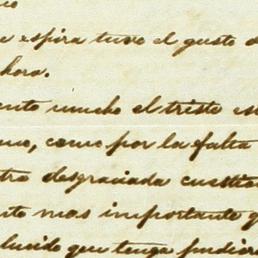 espira tuve el gusto d
ahora.
ento mucho el triste es
mo, como por la falta
tra desgraciada cuestion
nto mas importante q
lucido que tenga pudier